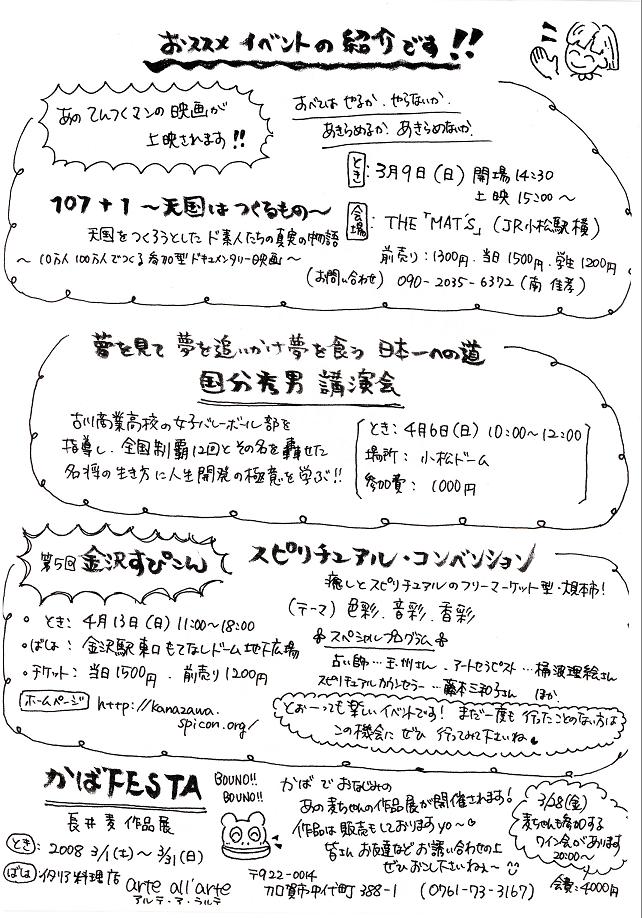 おススメ イベントの 紹介です!!
あの てんつくマンの 映画が
上映されます!!
すべては やるか、やらないか、
あきらめるか、あきらめないか、
107+1 〜天国はつくるもの〜
天国をつくろうとした ド素人たちの真実の物語
〜 10万人 100万人でつくる 参加型ドキュメンタリー映画 〜
とき: 3月9日(日) 開場 14:30
上映 15:00〜
会場: THE「MAT'S」(JR小松駅横)
前売り:1300円、当日 1500円、学生 1200円
(お問い合わせ) 090-2035-6372 (南 佳孝)
夢を見て 夢を追いかけ 夢を食う 日本一への道
国分秀男 講演会
古川商業高校の女子バレーボール部を
指導し、全国制覇12回とその名を轟せた
名将の生き方に人生開発の極意を学ぶ!!
とき: 4月6日(日) 10:00〜12:00
場所: 小松ドーム
参加費: 1000円
第5回 金沢すぴこん
スピリチュアル・コンベンション
癒しとスピリチュアルのフリーマーケット型・見本市!
(テーマ) 色彩、音彩、香彩
・とき: 4月13日(日) 11:00〜18:00
・ばしょ: 金沢駅東口 もてなしドーム地下広場
・チケット: 当日1500円、前売り1200円
ホームページ http://kanazawa.
spicon.org/
スペシャルプログラム
占い師…玉州さん、アートセラピスト…桶波理絵さん
スピリチュアルカウンセラー…藤本三和子さん ほか
とぉーっても楽しいイベントです! まだ一度も行ったことのない方は
この機会に ぜひ 行ってみて下さいね
かばFESTA
長井 麦 作品展
とき: 2008 3/1(土)〜3/31(日)
ばしょ: イタリア料理店 arte all'arte
アルテ・ア・ラルテ
BOUNO!!
BOUNO!!
かば でおなじみの
あの麦ちゃんの作品展が開催されます!
作品は販売もしておりますyo〜
皆さん お友達など お誘い合わせの上
ぜひお越し下さいねぇ〜
〒922-0014
加賀市中代町388-1 (0761-73-3167)
3/28(金)
麦ちゃんも参加する
ワイン会があります
20:00〜
会費:4000円